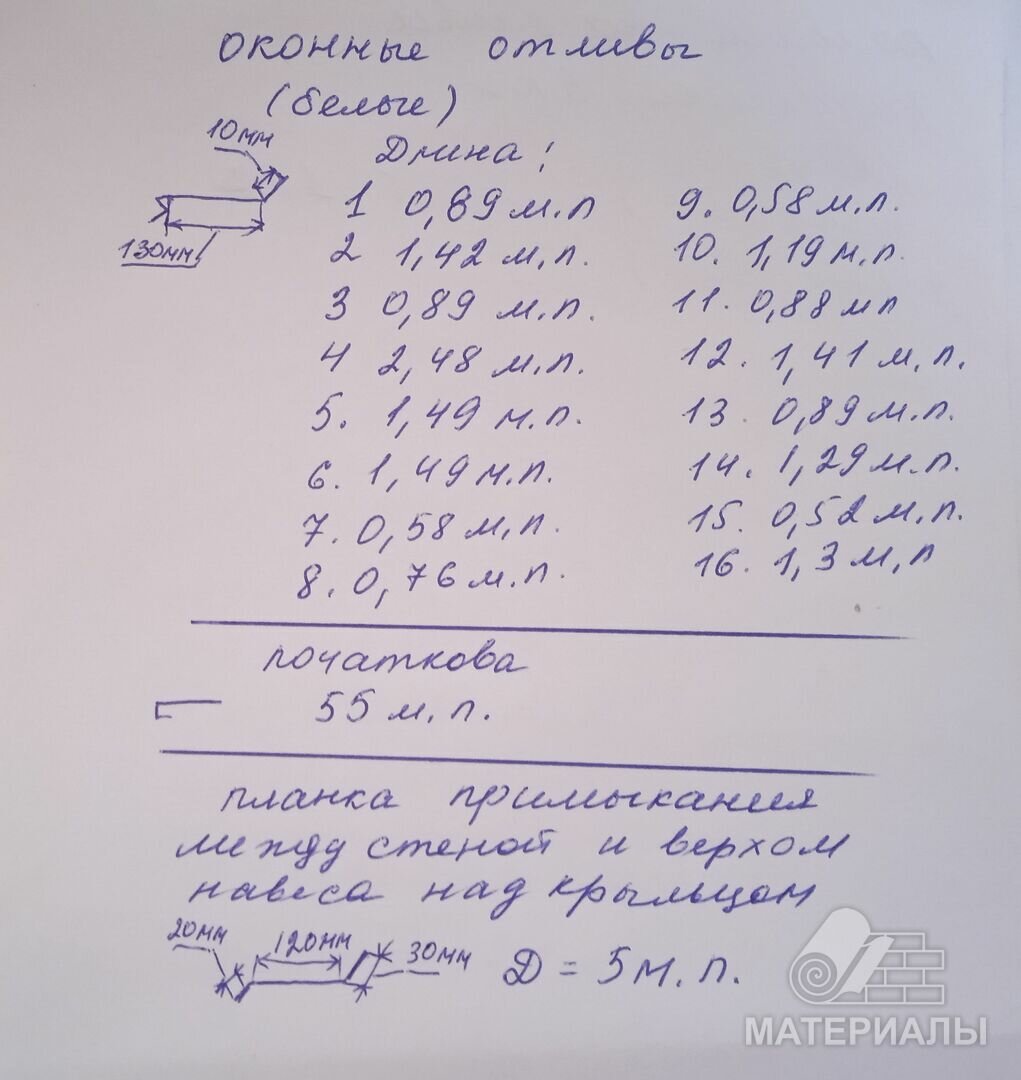 оконные отливы
(белые)
10мм
130мм
Длина:
1 0,89 м.п
2 1,42 м.п.
3 0,89 м.п.
4 2,48 м.п.
5. 1,49 м.п.
6. 1,49 м.п.
7. 0,58 м.п.
8. 0,76 м.п.
9. 0,58 м.п.
10. 1,19 м.п.
11. 0,88 мп
12. 1,41 м.п.
13. 0,89 м.п.
14. 1,29 м.п.
15. 0,52 м.п.
16. 1,3 м,п
початкова
55 м.п.
планка примыкания
между стеной и верхом
навеса над крыльцом
20мм 120мм 30мм
D = 5 м.п.
МАТЕРИАЛЫ